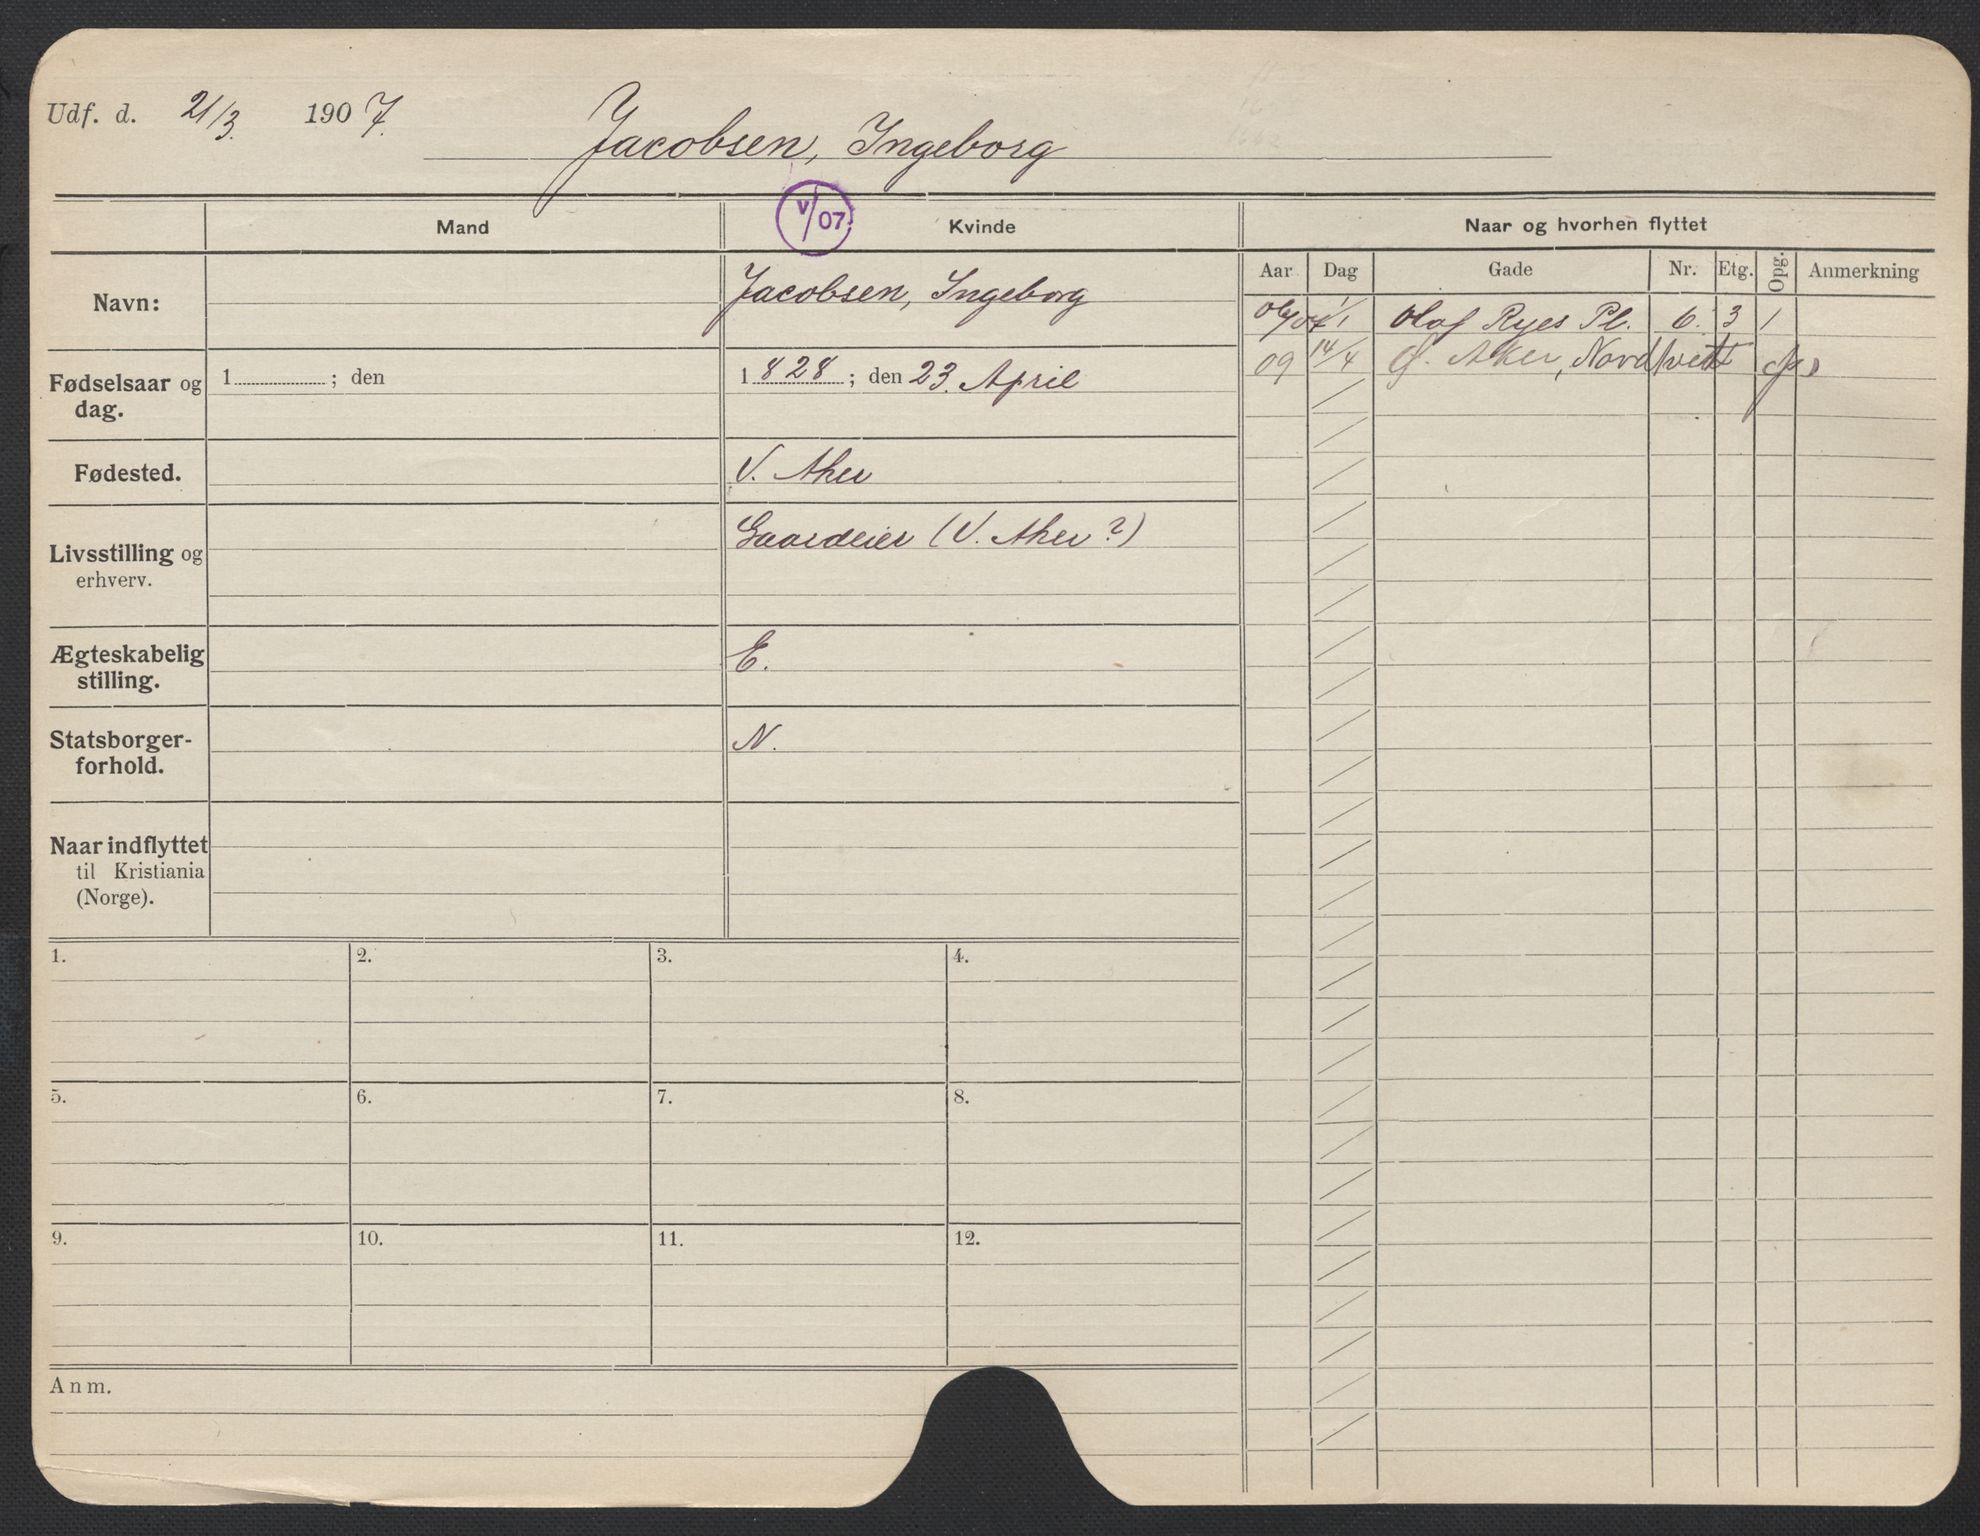 Udf. d. 21/3. 1907.
Jacobsen, Ingeborg
V/07.
Mand Kvinde Naar og hvorhen flyttet
Aar Dag Gade Nr. Etg. Opg. Anmerkning
Navn: Jacobsen, Ingeborg
1/1 Olaf Ryes Pl. 6. 3 1
09 14/4 Ø. Aker, Nordtvedt
Fødselsaar og dag. 1 ; den 1828; den 23. April
Fødested. V. Aker
Livsstilling og erhverv. Gaardeier (V. Aker?)
Ægteskabelig stilling. E.
Statsborger-
forhold. N.
Naar indflyttet
til Kristiania
(Norge).
1. 2. 3. 4.
5. 6. 7. 8.
9. 10. 11. 12.
Anm.